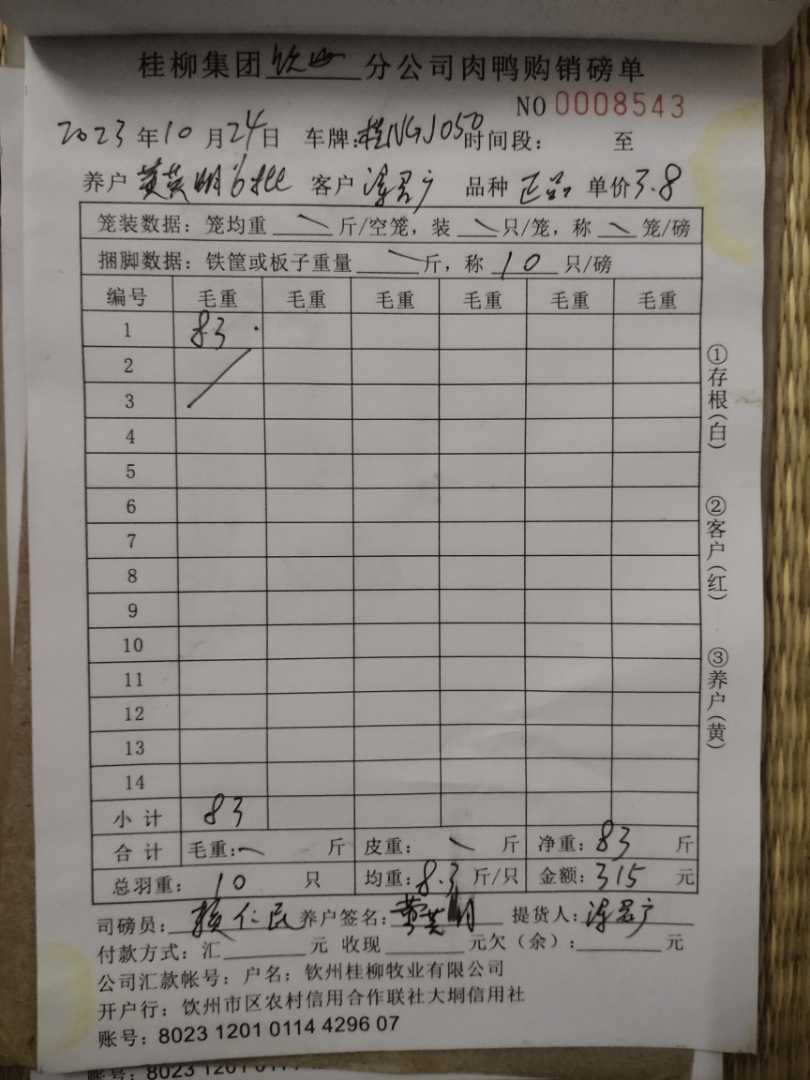 桂柳集团钦州分公司肉鸭购销磅单
NO 0008543
2023年10月24日 车牌:桂NGJ050 时间段: 至
养户 黄英明6批 客户 品种 正品 单价3.8
笼装数据: 笼均重 斤/空笼, 装 只/笼, 称 笼/磅
捆脚数据: 铁筐或板子重量 斤, 称 10 只/磅
编号 毛重 毛重 毛重 毛重 毛重 毛重
1 83
2
3
4
5
6
7
8
9
10
11
12
13
14
小计 83
合计 毛重: 斤 皮重: 斤 净重: 83 斤
总羽重: 10 只 均重: 8.3 斤/只 金额: 315 元
司磅员: 仁民 养户签名: 黄英明 提货人:
付款方式: 汇 元 收现 元欠(余): 元
公司汇款帐号: 户名: 钦州桂柳牧业有限公司
开户行: 钦州市区农村信用合作联社大垌信用社
账号: 8023 1201 0114 4296 07
①存根(白)
②客户(红)
③养户(黄)
账号: 8023 1201 0114 4296